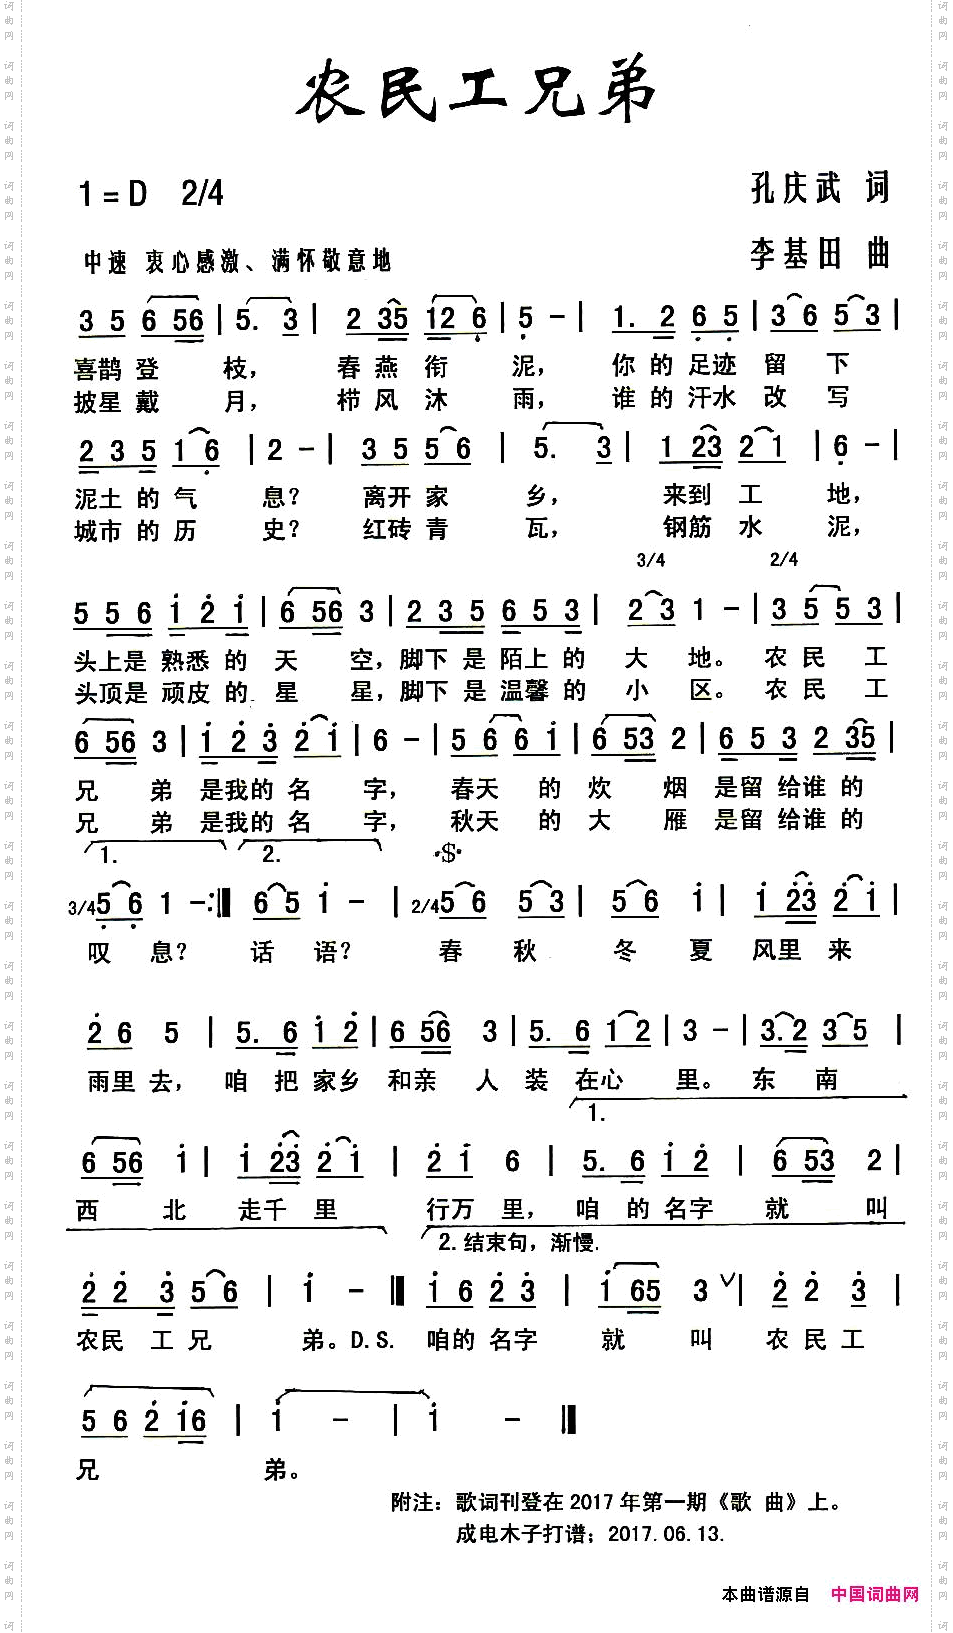 农民工兄弟
1=D 2/4
孔庆武 词
中速 衷心感激、满怀敬意地
李基田 曲
3 5 6 56 | 5. 3 | 2 35 12 6 | 5 - | 1. 2 6 5 | 3 6 5 3 |
喜鹊 登 枝， 春 燕 衔 泥， 你 的 足迹 留 下
披星 戴 月， 栉 风 沐 雨， 谁 的 汗水 改 写
2 3 5 1 6 | 2 - | 3 5 5 6 | 5. 3 | 1 23 2 1 | 6 - |
泥土 的 气 息？ 离开 家 乡， 来到 工 地，
城市 的 历 史？ 红砖 青 瓦， 钢筋 水 泥，
3/4 2/4
5 5 6 1 2 1 | 6 56 3 | 2 3 5 6 5 3 | 2 3 1 - | 3 5 5 3 |
头上是 熟悉 的 天 空，脚下 是 陌上 的 大 地。 农 民 工
头顶是 顽皮 的 星 星，脚下 是 温馨 的 小 区。 农 民 工
6 56 3 | 1 2 3 2 1 | 6 - | 5 6 6 1 | 6 53 2 | 6 5 3 2 35 |
兄 弟 是我的 名 字， 春天 的 炊 烟 是留 给谁 的
兄 弟 是我的 名 字， 秋天 的 大 雁 是留 给谁 的
1. 2. 𝄋
3/4 5 6 1 - :‖ 6 5 1 - | 2/4 5 6 5 5 | 5 6 1 | 1 23 2 1 |
叹 息？ 话 语？ 春 秋 冬 夏 风里 来
2 6 5 | 5. 6 1 2 | 6 56 3 | 5. 6 1 2 | 3 - | 3.2 3 5 |
雨里 去， 咱 把 家乡 和亲 人 装 在心 里。 东 南
1.
6 56 1 | 1 23 2 1 | 2 1 6 | 5. 6 1 2 | 6 53 2 |
西 北 走千 里 行万 里， 咱 的 名字 就 叫
2. 结束句，渐慢.
2 2 3 5 6 | 1 - ‖ 1 6 2 3 | 1 65 3 ∨ | 2 2 3 |
农民 工 兄 弟。D.S. 咱的 名字 就 叫 农 民 工
5 6 2 16 | 1 - | 1 - ‖
兄 弟。
附注：歌词刊登在2017年第一期《歌 曲》上。
成电木子打谱；2017.06.13.
本曲谱源自 中国词曲网